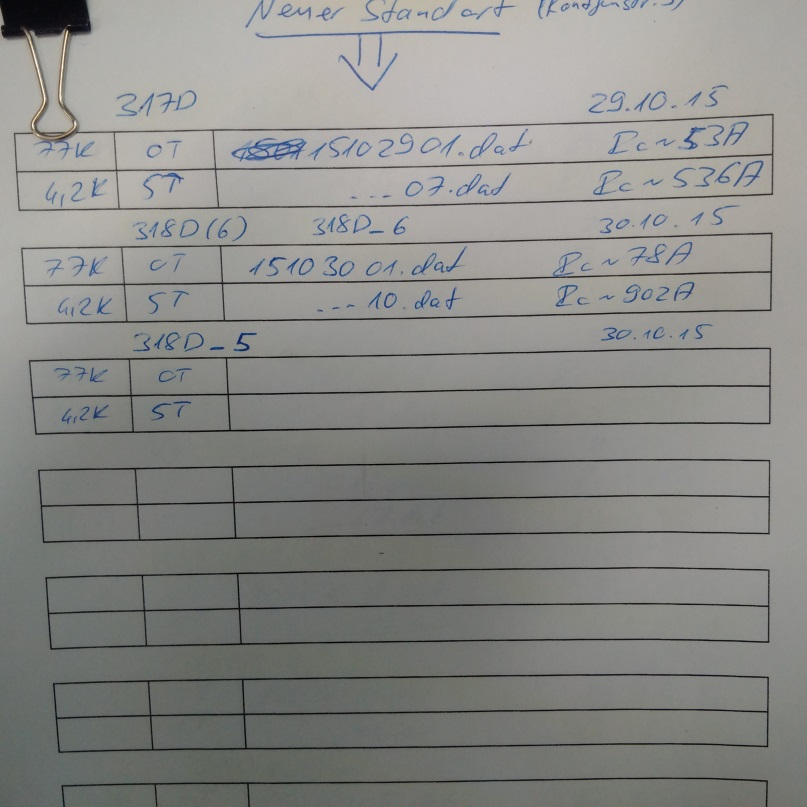 Neuer Standart
317D 29.10.15
77K 0T 15102901.dat Ic ~ 53A
4,2K 5T ... 07.dat Ic ~ 536A
318D(6) 318D_6 30.10.15
77K 0T 15103001.dat Ic ~ 78A
4,2K 5T --- 10.dat Ic ~ 902A
318D_5 30.10.15
77K 0T
4,2K 5T